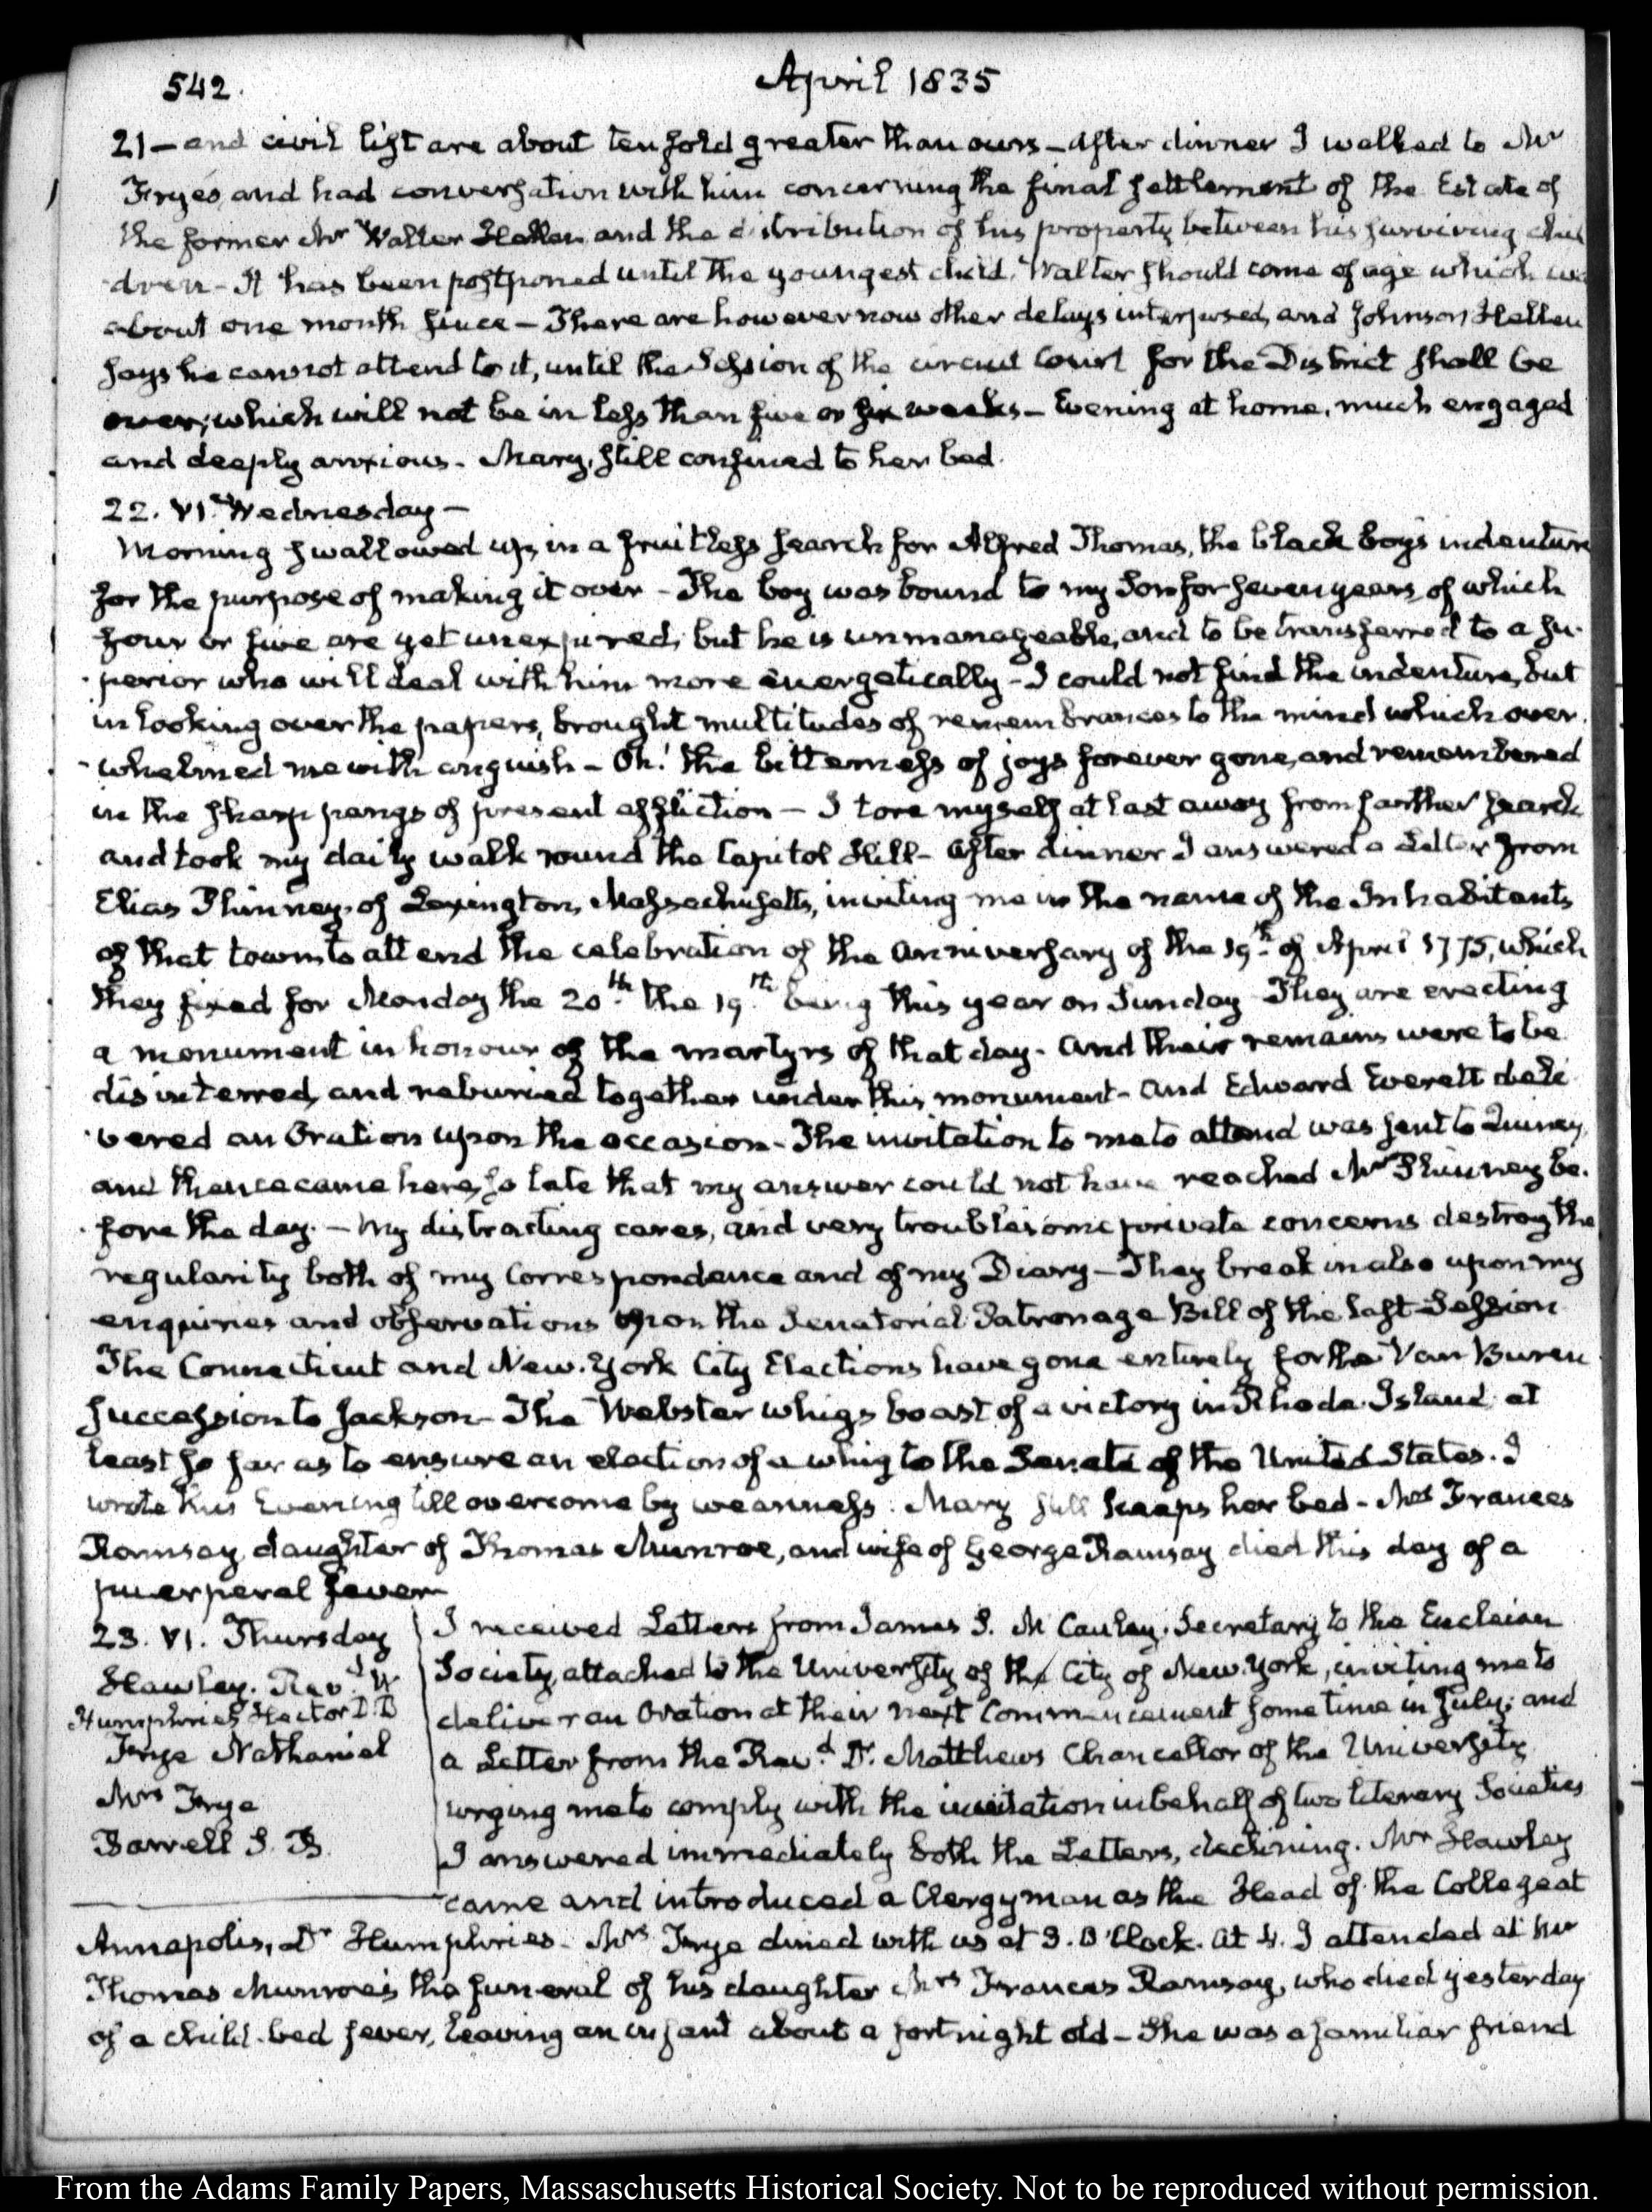 542.
April 1835
21 — and civil list are about tenfold greater than ours — After dinner I walked to Mr
Frye's, and had conversation with him concerning the final settlement of the Estate of
the former Mr Walter Hellen and the distribution of his property between his surviving chil
dren — It has been postponed until the youngest child, Walter should come of age which was
about one month since — There are however now other delays interposed, and Johnson Hellen
says he cannot attend to it, until the Session of the circuit Court for the District shall be
over; which will not be in less than five or six weeks — Evening at home, much engaged
and deeply anxious. Mary, still confined to her bed.
22. VI. Wednesday —
Morning swallowed up, in a fruitless search for Alfred Thomas, the black boy's indenture
for the purpose of making it over — The boy was bound to my Son for seven years, of which
four or five are yet unexpired, but he is unmanageable, and to be transferred to a su-
perior who will deal with him more energetically — I could not find the indenture, but
in looking over the papers, brought multitudes of remembrances to the mind which over-
whelmed me with anguish — Oh! the bitterness of joys forever gone, and remembered
in the sharp pangs of present affliction — I tore myself at last away from further search
and took my daily walk round the Capitol Hill — After dinner I answered a Letter from
Elias Phinney, of Lexington, Massachusetts, inviting me in the name of the Inhabitants
of that town to attend the celebration of the Anniversary of the 19th of April 1775, which
they fixed for Monday the 20th the 19th being this year on Sunday. They are erecting
a monument in honour of the martyrs of that day. And their remains were to be
disinterred, and reburied together under this monument — and Edward Everett deli-
vered an Oration upon the occasion — The invitation to me to attend was sent to Quincy
and thence came here, so late that my answer could not have reached Mr Phinney be-
fore the day. — My distracting cares, and very troublesome private concerns destroy the
regularity both of my Correspondence and of my Diary — They break in also upon my
enquiries and observations upon the Senatorial Patronage Bill of the last Session
The Connecticut and New-York City Elections have gone entirely for the Van Buren
succession to Jackson — The Webster whigs boast of a victory in Rhode-Island, at
least so far as to ensure an election of a whig to the Senate of the United States. I
wrote this Evening till overcome by weariness. Mary still keeps her bed — Mrs Frances
Ramsay, daughter of Thomas Munroe, and wife of George Ramsay died this day of a
puerperal fever
23. VI. Thursday
Hawley. Revd W
Humphries Hector D.D
Frye Nathaniel
Mrs Frye
Barrell S. B.
I received Letters from James S. McCauley, Secretary to the Eucleian
Society, attached to the University of the City of New-York, inviting me to
deliver an Oration at their next Commencement sometime in July; and
a Letter from the Revd Dr. Matthews Chancellor of the University
urging me to comply with the invitation in behalf of two literary Societies
I answered immediately both the Letters, declining. Mr Hawley
came and introduced a Clergyman as the Head of the College at
Annapolis, Dr Humphries — Mrs Frye dined with us at 3. O'Clock. At 4. I attended at Mr
Thomas Munroe's the funeral of his daughter Mrs Frances Ramsay, who died yesterday
of a child-bed fever, leaving an infant about a fortnight old — She was a familiar friend
From the Adams Family Papers, Massachusetts Historical Society. Not to be reproduced without permission.